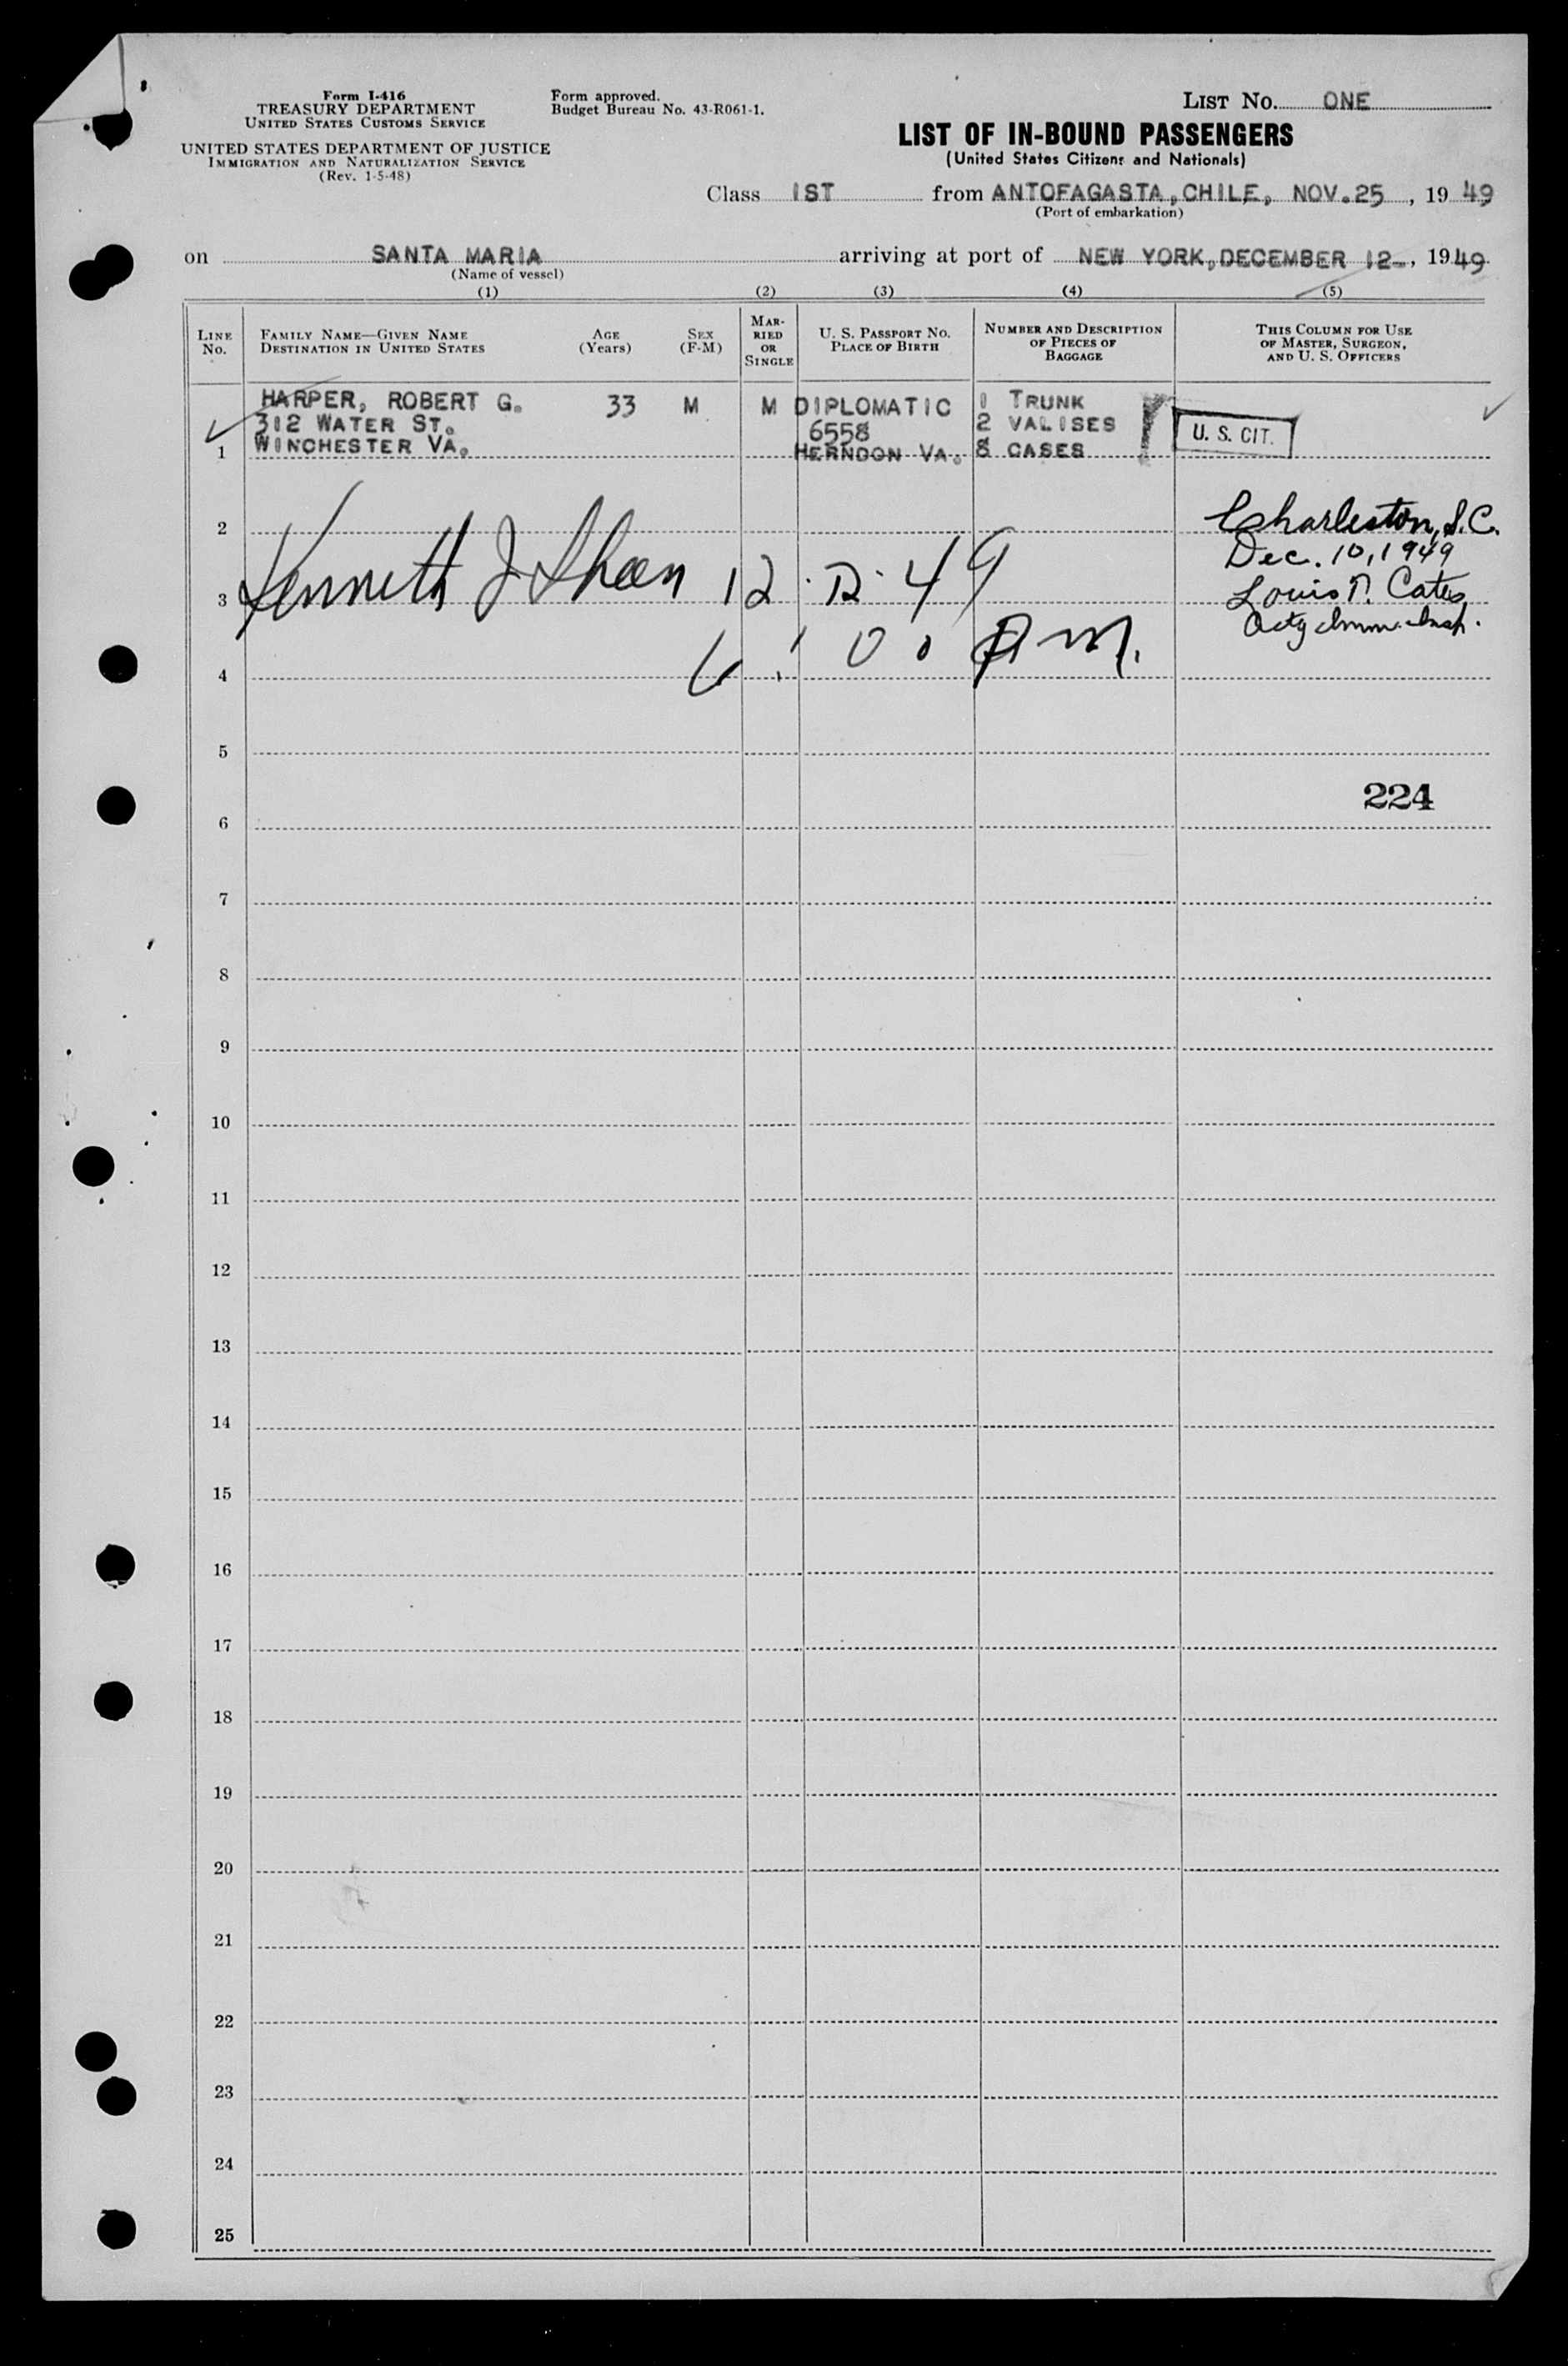 Form I-416
TREASURY DEPARTMENT
UNITED STATES CUSTOMS SERVICE
UNITED STATES DEPARTMENT OF JUSTICE
IMMIGRATION AND NATURALIZATION SERVICE
(Rev. 1-5-48)
Form approved.
Budget Bureau No. 43-R061-1.
LIST No. ONE
LIST OF IN-BOUND PASSENGERS
(United States Citizens and Nationals)
Class 1ST from ANTOFAGASTA, CHILE, NOV. 25, 19 49
(Port of embarkation)
on SANTA MARIA arriving at port of NEW YORK, DECEMBER 12-, 1949
(Name of vessel)
(1) (2) (3) (4) (5)
LINE No.
FAMILY NAME—GIVEN NAME
DESTINATION IN UNITED STATES
AGE
(Years)
SEX
(F-M)
MAR-
RIED
OR
SINGLE
U. S. PASSPORT NO.
PLACE OF BIRTH
NUMBER AND DESCRIPTION
OF PIECES OF
BAGGAGE
THIS COLUMN FOR USE
OF MASTER, SURGEON,
AND U. S. OFFICERS
HARPER, ROBERT G. 33 M M DIPLOMATIC 1 TRUNK
312 WATER ST. 6558 2 VALISES U. S. CIT.
1 WINCHESTER VA. HERNDON VA. 8 CASES
2 Charleston, S.C.
Dec. 10, 1949
3 Kenneth J 12 · 12 · 49 Louis Cates
Actg Imm. Insp.
4 6:00 PM.
5
224
6
7
8
9
10
11
12
13
14
15
16
17
18
19
20
21
22
23
24
25